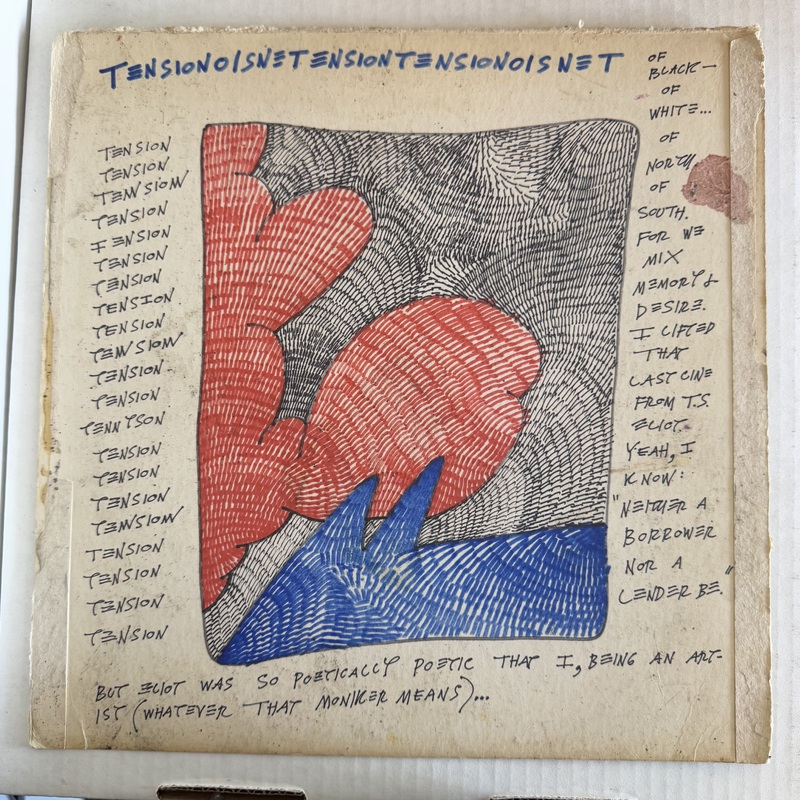 TENSIONOISNETENSIONTENSIONOISNET
TENSION
TENSION
TENNSIONN
TENSION
TENSION
TENSION
TENSION
TENSION
TENSION
TENNSIONN
TENSION
TENSION
TENNYSON
TENSION
TENSION
TENSION
TENNSIONN
TENSION
TENSION
TENSION
TENSION
OF
BLACK—
OF
WHITE...
OF
NORTH,
OF
SOUTH.
FOR WE
MIX
MEMORY &
DESIRE.
I LIFTED
THAT
LAST LINE
FROM T.S.
ELIOT.
YEAH, I
KNOW:
"NEITHER A
BORROWER
NOR A
LENDER BE."
BUT ELIOT WAS SO POETICALLY POETIC THAT I, BEING AN ART-
IST (WHATEVER THAT MONIKER MEANS)...